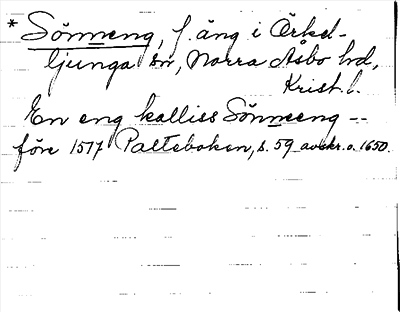 * Sönneng, f. äng i Örkel-
ljunga sn, Norra Åsbo hd,
Krist. l.
En eng kalliss Sönneeng --
före 1517 Palteboken, s. 59 avskr. o. 1650.